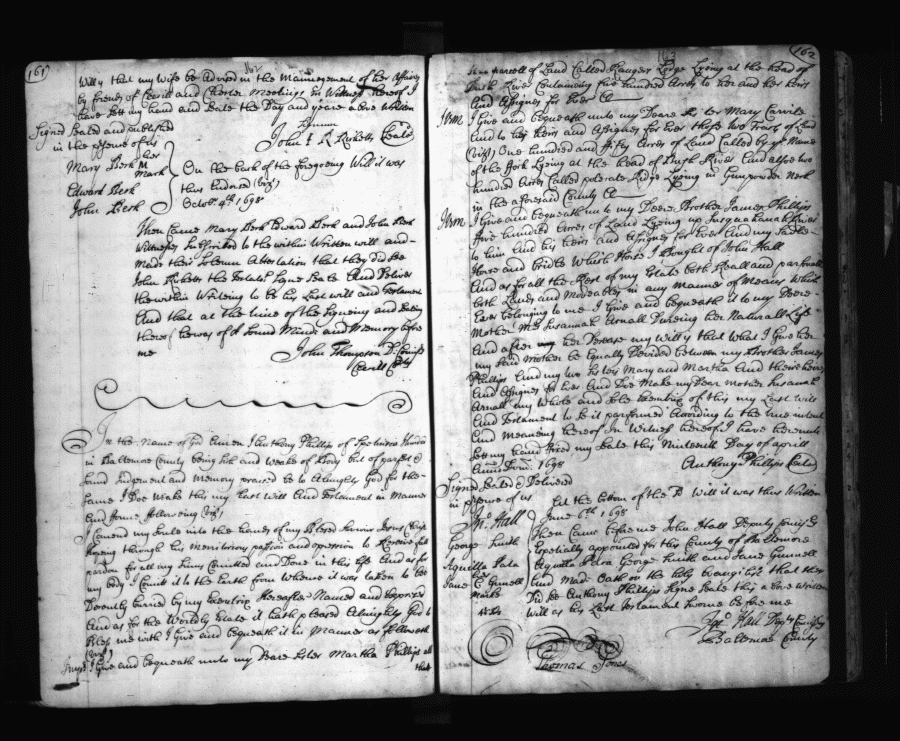 161
162
Will & that my Wife be Advised in the Mannegement of her Affairs
by friends of Cecill and Chester Meetings In Witness hereof I
have Sett my hand and Seale the Day and yeare above Written
Signum
Signed Sealed and published
in the presence of us
John I R Ricketts Seale
her
Mary Berk M
Mark
Edward Berk
John Berk
On the back of the foregoing Will it was
thus Endorsed (viz)
October 4th 1698
Then Came Mary Berk Edward Berk and John Berk
Witnesses Subscribed to the within Written will and
Made their Solemn Attestation that they did See
John Ricketts the Testator Signe Seale And Deliver
the within Writeing to be his Last will and Testament
And that at the time of the Signeing and Sealing
thereof he was of Sound Minde and Memory before
me
John Thompson D Comiss
Cecill County
In the Name of God Amen I Anthony Phillips of Spesutia Hundred
in Baltemore County being Sick and Weake of Body but of parfect &
Sound Judgement and Memory praised be to Almighty God for the
Same I Doe Make this my Last Will And Testament in Manner
And forme following (viz)
I Comend my Soule into the hands of my Blessed Saviour Jesus Christ
hopeing through his Meritorious passion and to Receive full
pardon for all my Sinns Comitted and Done in this life And as for
my body I Comit it to the Earth from Whence it was taken to be
Decently buried by my Executrix hereafter Named and
And as for the Worldly Estate it hath pleased Almighty God to
Bless me with I Give and bequeath it in Manner as followeth
(viz)
I Give and bequeath unto my Deare Sister Martha Phillips all
that
162
163
parcell of Land Called Rangers Lodge Lying at the head of
Bush River Containing five hundred Acres to her and her heirs
And Assignes for Ever &
Item I Give and bequeath unto my Deare Sister Mary Carvile
And to her heirs and Assignes for Ever those two Tracts of Land
(viz) One hundred and fifty Acres of Land Called by the Name
of the Fork Lying at the head of Bush River And also two
hundred Acres Called Ridge Lying in Gunpowder Neck
in the aforesaid County &
Item I Give and bequeath unto my Deare Brother James Phillips
five hundred Acres of Land Lying up Susquehanah River
to him And his heirs and Assignes for Ever And my Sadle
Horse and bridle Which Horse I bought of John Hall
And as for all the Rest of my Estate both Reall and parsonall
both Lands and Moveables in any manner of Meanes Whatso
Ever belonging to me I Give and bequeath it to my Deare
Mother Mrs Susannah Arnall Dureing her Naturall Life
And after her Decease my Will is that What I Give her
my said Mother be Equally Devided between my Brother James
Phillips And my two Sisters Mary and Martha And their heirs
And Assignes for Ever And Doe Make my Dear Mother Susanah
Arnall my Whole and Sole Executrix of this my Last Will
And Testament to See it parformed According to the true intent
And Meaning thereof In Witness hereof I have hereunto
Sett my hand fixed my Seale this Ninteenth Day of aprill
Anno Dom. 1698
Anthony Phillips Seale
Signed Sealed & Delivered
in presence of us
Jno Hall
George Smith
Aquilla Paca
Jane Gunnell
marke
Att the bottom of the Will it was thus Written
June 6th 1698
Then Came before me John Hall Deputy Comiss
Especially appointed for this County of Baltemore
Aquilla Paca George Smith and Jane Gunnell
And Made Oath on the holy Evangelists that they
Did See Anthony Phillips Signe Seale this above Written
Will as his Last Testament Sworne before me
Jno Hall Depty Comissy
Baltemore County
Thomas Jones